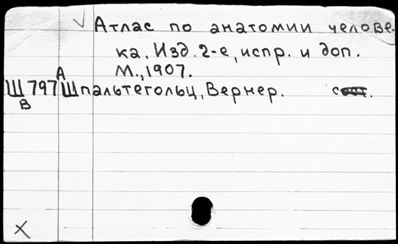 Атлас по анатомии челове-
ка. Изд. 2-е, испр. и доп.
М., 1907.
А
Ш797 Шпальтегольц, Вернер.
В